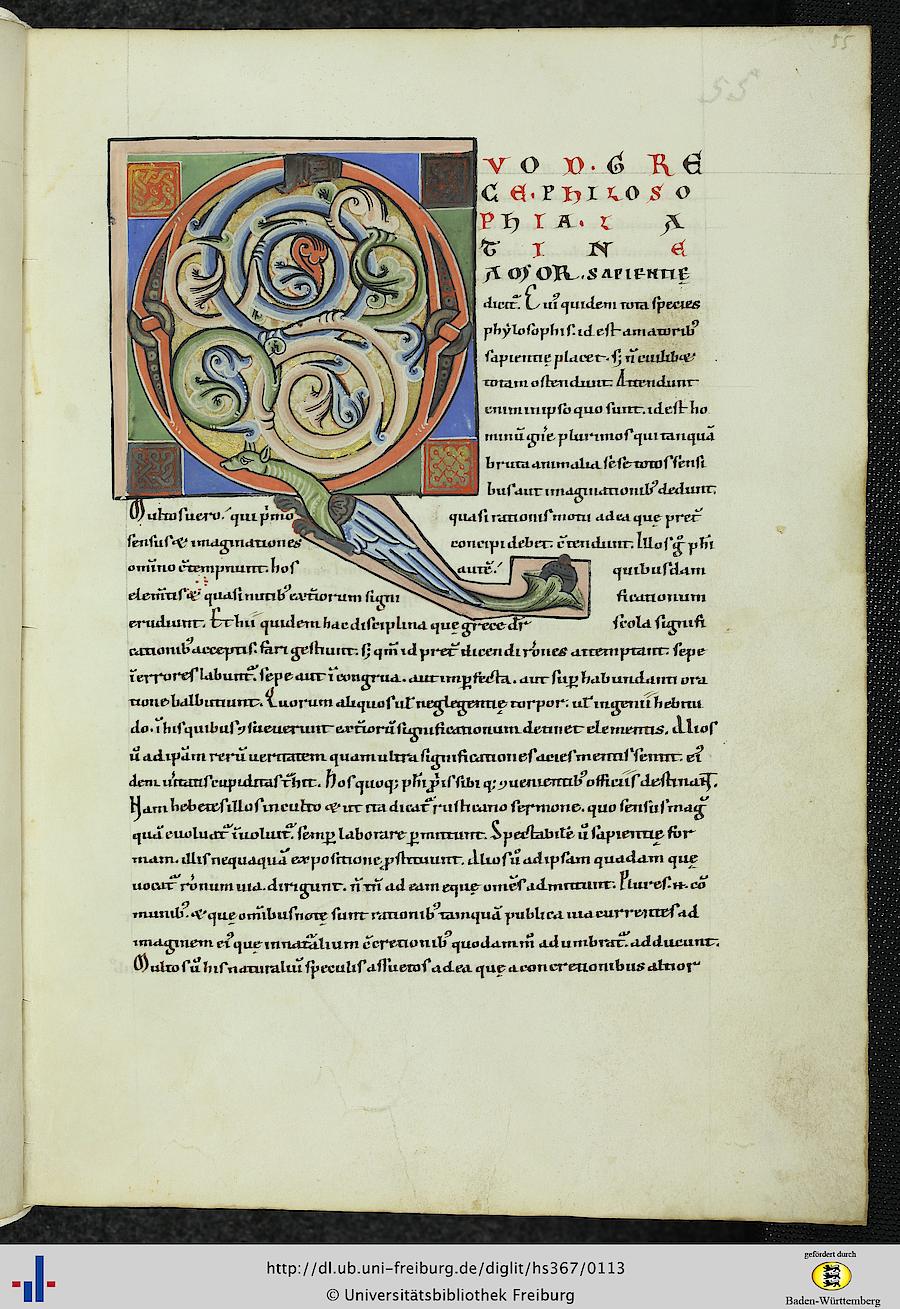 55
55
VO D. GRE
CE. PHILOSO
PHIA. LA
TINE
AMOR. SAPIENTIĘ
dicit̃. Eiu᷒ quidem tota species
phỳlosophis. id est amatorib᷒
sapientię placet. s; ñ cuilibet
totam ostendunt. Attendunt
enim in ipso quo sunt. id est ho
minũ gñe plurimos qui tanquã
bruta animalia sese totos sensi
bus aut imaginationib᷒ dedunt.
Multos uero. qui p̃mo quasi rationis motu ad ea quę pret̃
sensus & imaginationes concipi debet. c̃tendunt. Illos g̊ phi
omnino c̃tempnunt. hos autẽ. quibusdam
elem̃tis & quasi nutib᷒ ext̃iorum signi ficationum
erudiunt. Et hii quidem hac disciplina quę grece dr̃ scola signifi
cationib᷒ acceptis. fari gestiunt. s; qm̃ id pret̃ dicendi rõnes attemptant. sepe
ĩ errores labunt̃. sepe aut ĩcongrua. aut imꝑfecta. aut suꝑhabundanti ora
tione balbutiunt. Quorum aliquos ul̃ neglegentię torpor. ul̃ ingenii hebitu
do. ĩ his quibus ꝯsueuerunt ext̃iorũ significationum detinet elementis. Alios
ũ ad ipãm rerũ ueritatem quam ultra significationes acies mentis sentit. ei᷒
dem ũitatis cupiditas t̃hit. Hos quoq; phi p̱is sibi q; ꝯuenientib᷒ officiis destinant.
Nam hebetes illos inculto & ut ita dicat̃ rusticano sermone. quo sensus mag̃
quã euoluat̃ ĩuoluit̃. semꝑ laborare ꝑmittunt. Spectabilẽ ũ sapientię for
mam. illis nequaquã expositione ꝓstituunt. Alios ũ ad ipsam quadam quę
uocat̃ rõnum uia. dirigunt. ñ tñ ad eam eque om̃es admittunt. Plures. n. cõ
munib᷒. & quę om̃ibus notę sunt rationib᷒ tamquã publica uia currentes ad
imaginem ei᷒ que in nat̃alium c̃cretionib᷒ quodam m̃ adumbrat̃. adducunt.
Multos ũ his naturaliũ speculis assuetos ad ea quę a concretionibus altior
http://dl.ub.uni-freiburg.de/diglit/hs367/0113
© Universitätsbibliothek Freiburg
gefördert durch
Baden-Württemberg